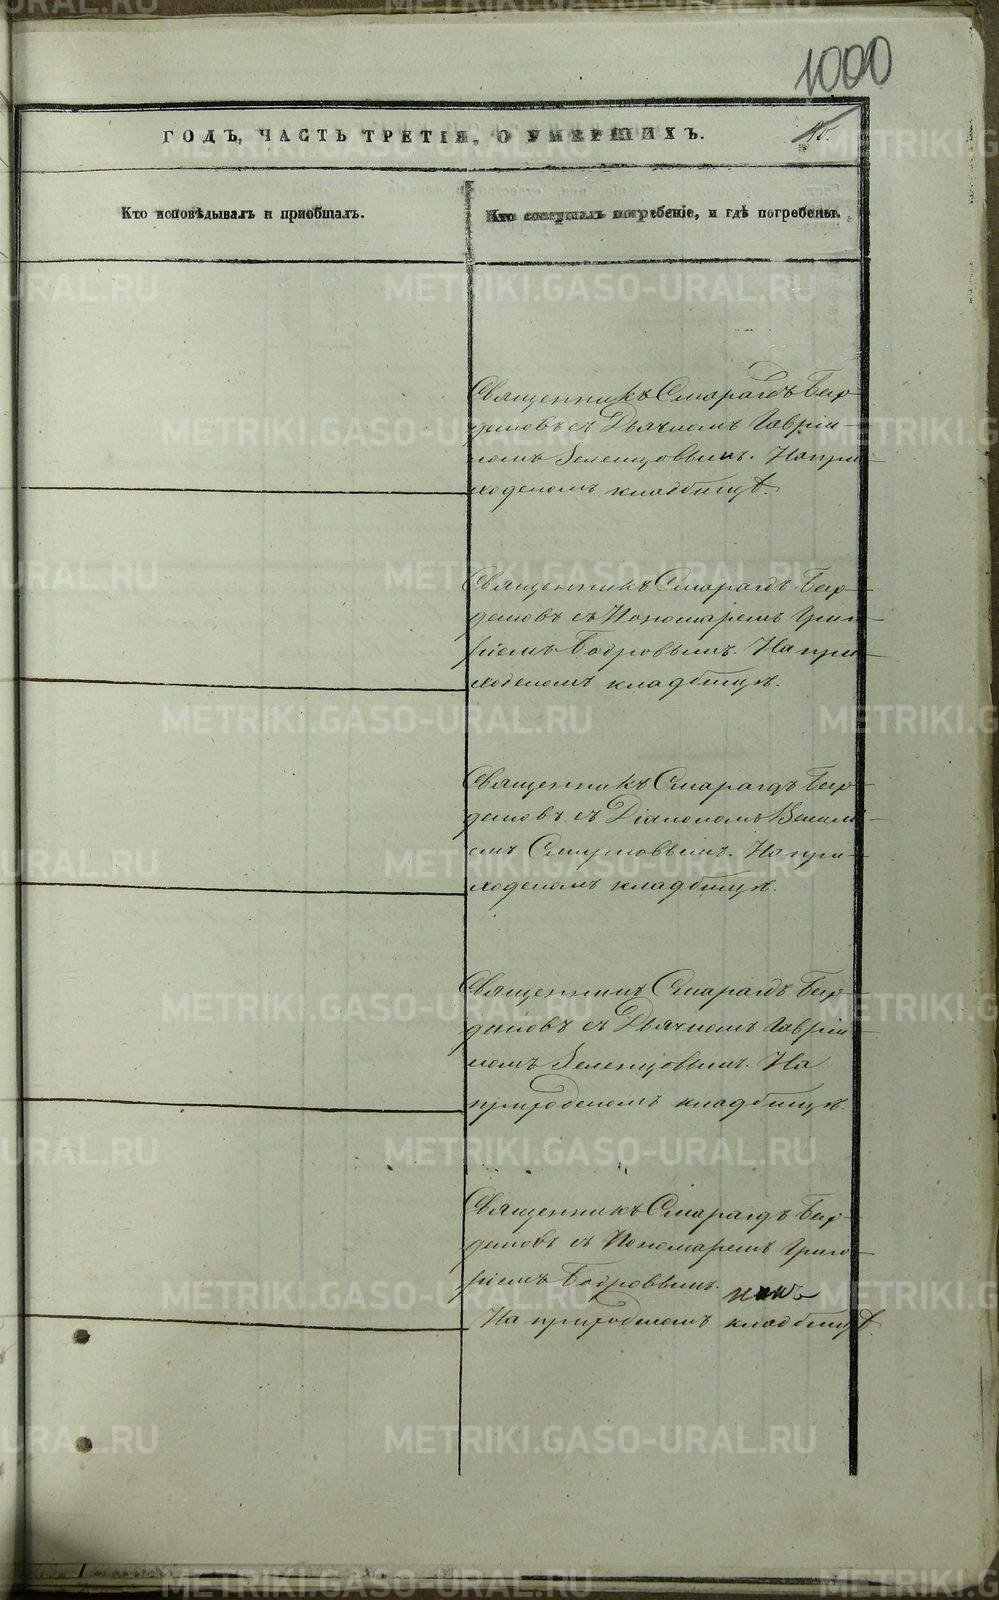 1000
ГОДЪ, ЧАСТЬ ТРЕТІЯ, О УМЕРШИХЪ.
Кто исповѣдывалъ и пріобщалъ.
Кто совершалъ погребеніе, и гдѣ погребены.
Священникъ Смарагдъ Бир-
демовъ съ Дьячкомъ Гаврiи-
ломъ Зеленцовымъ. На при-
ходскомъ кладбищѣ.
Священникъ Смарагдъ
съ Пономаремъ Григо-
ріемъ Бобровымъ. На при-
ходскомъ кладбищѣ.
Священникъ Смарагдъ
съ Діакономъ Васили-
емъ Смирновымъ. На при-
ходскомъ кладбищѣ.
Священникъ Смарагдъ
съ Дьячкомъ Гавріи-
ломъ Зеленцовымъ. На
приходскомъ кладбищѣ.
Священникъ Смарагдъ
съ Пономаремъ Григо-
ріемъ Бобровымъ.
На приходскомъ кладбищѣ.
METRIKI.GASO-URAL.RU